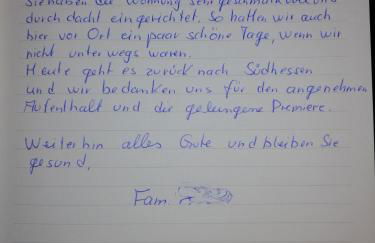 Sie haben die Wohnung sehr geschmackvoll und
durchdacht eingerichtet. So hatten wir auch
hier vor Ort ein paar schöne Tage, wenn wir
nicht unterwegs waren.
Heute geht es zurück nach Südhessen
und wir bedanken uns für den angenehmen
Aufenthalt und die gelungene Premiere.
Weiterhin alles Gute und bleiben Sie
gesund.
Fam.